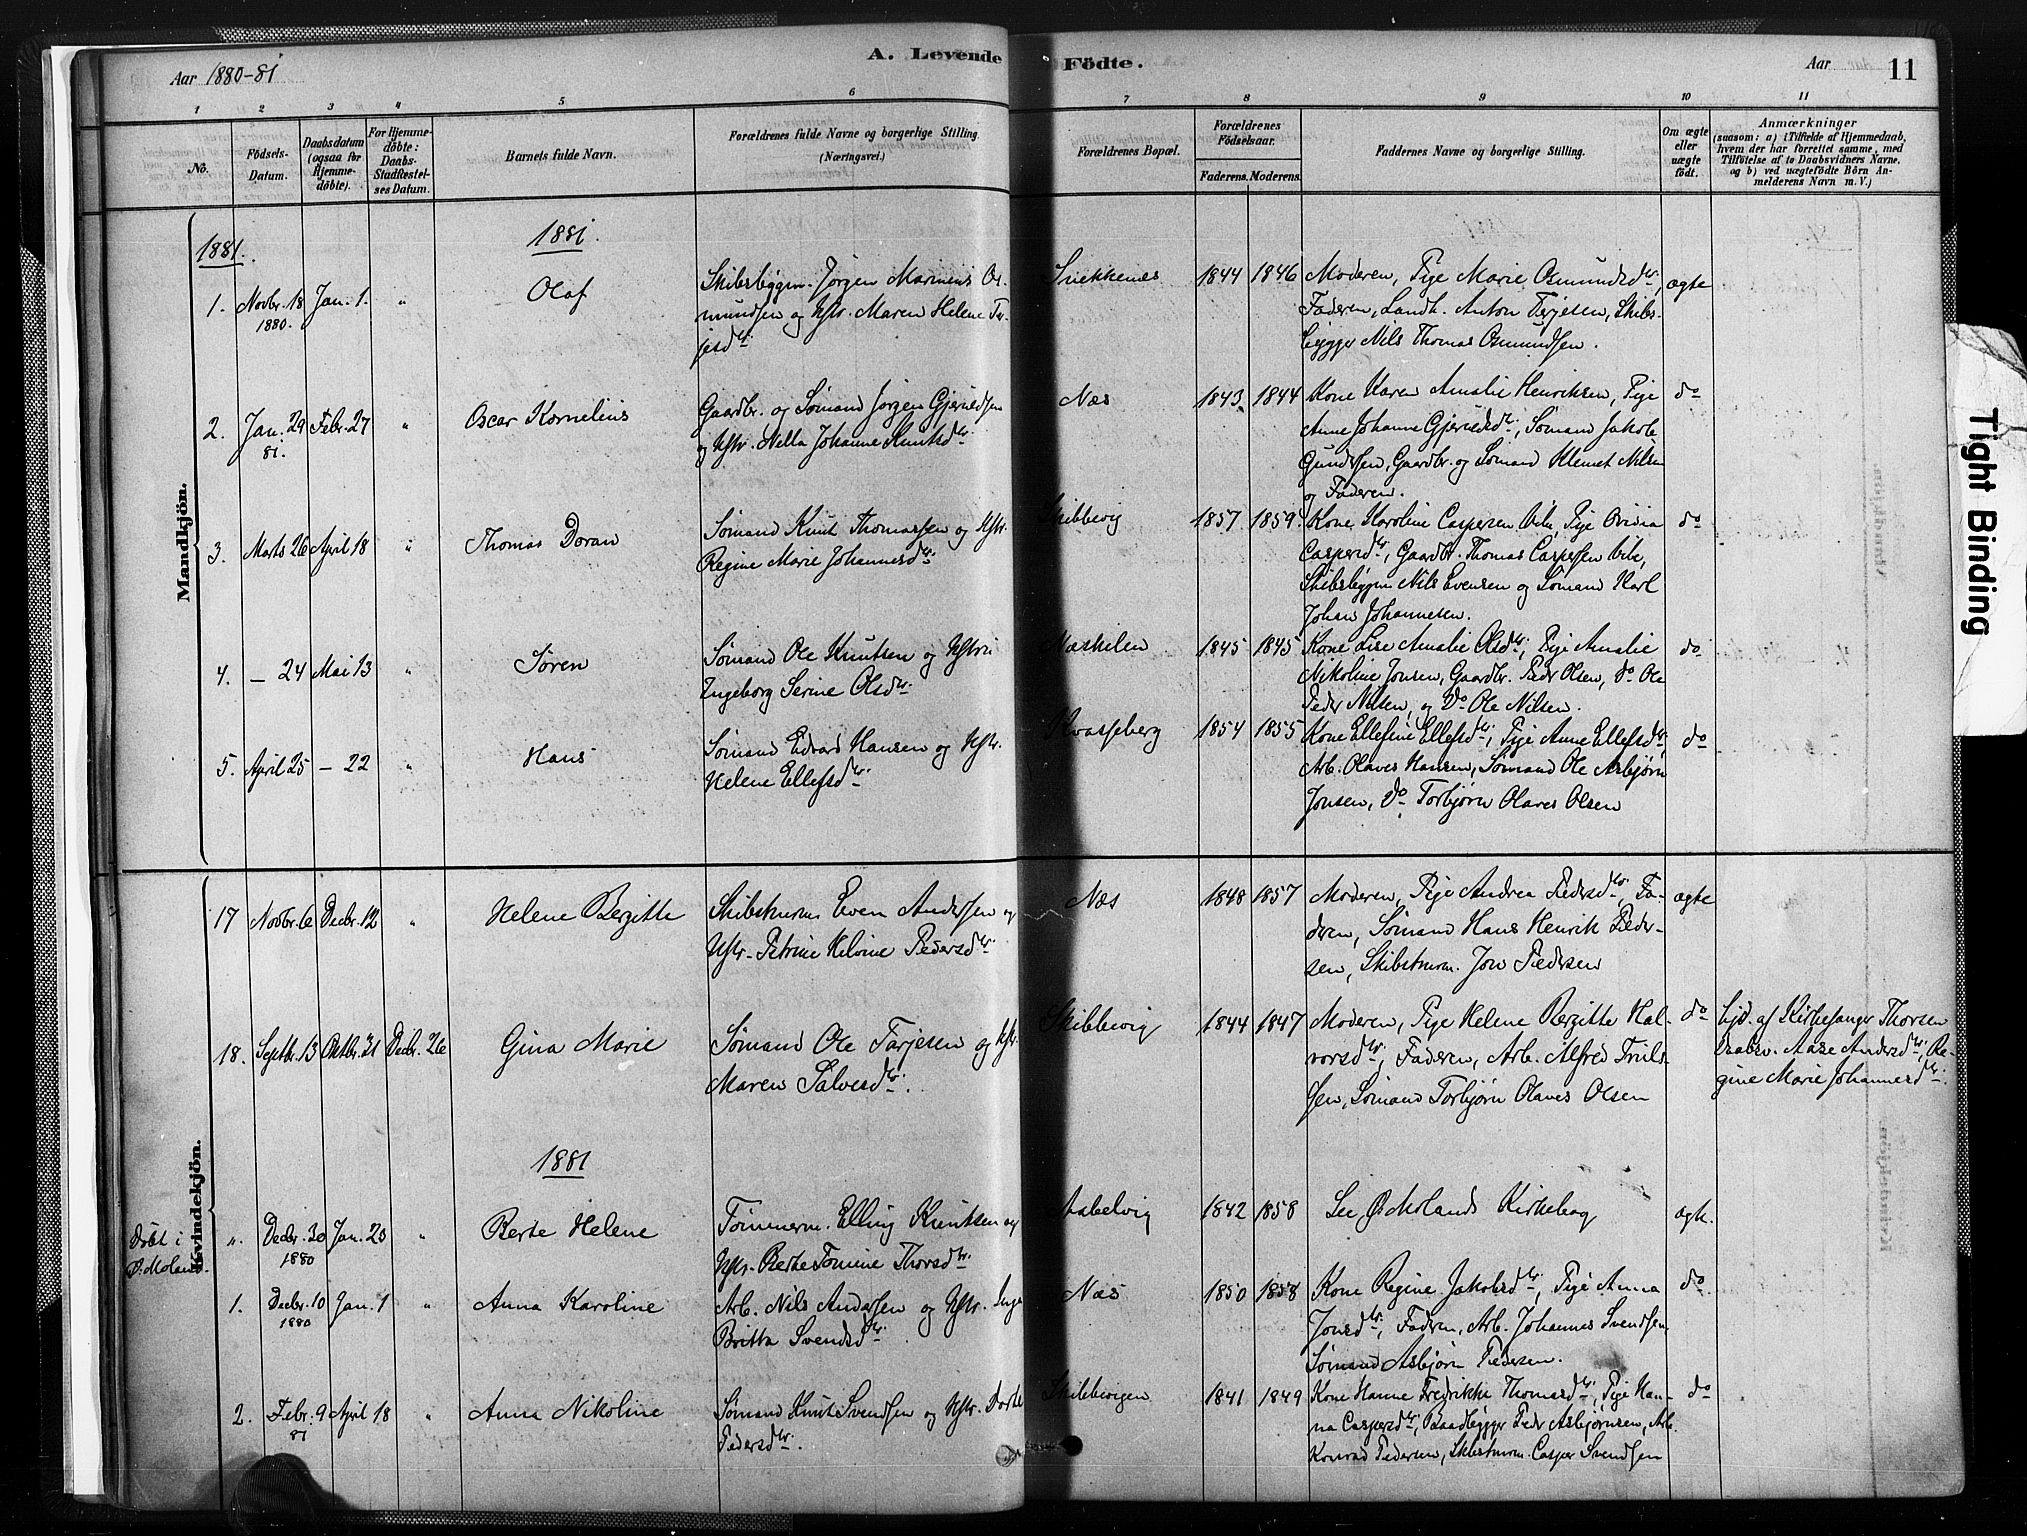 Aar 1880-81
A. Levende Födte.
Aar 11
1 2 3 4 5 6 7 8 9 10 11
No.
Födsels-Datum.
Daabsdatum (ogsaa for Hjemme-döbte).
For Hjemme-döbte: Daabs-Stadfæstel-ses Datum.
Barnets fulde Navn.
Forældrenes fulde Navne og borgerlige Stilling.
(Næringsvei.)
Forældrenes Bopæl.
Forældrenes Födselsaar.
Faderens. Moderens.
Faddernes Navne og borgerlige Stilling.
Om ægte eller uægte födt.
Anmærkninger
(saasom: a) i Tilfælde af Hjemmedaab,
hvem der har forrettet samme, med
Tilföielse af to Daabsvidners Navne,
og b) ved uægtefödte Börn An-
melderens Navn m. V.)
Mandkjön.
1881.
1881.
1. Novbr. 18 1880. Jan. 1. " Olaf
Skibsbyggm. Jørgen Marinius Os-
mundsen og Hstr. Maren Helene Ter-
jesdtr.
Snekkenes 1844 1846
Moderen, Pige Marie Osmundsdtr,
Faderen, Landh. Anton Terjesen, Skibs-
bygger Nils Thomas Osmundsen.
ægte
2. Jan. 29 81. Febr. 27 " Oscar Kornelius
Gaardbr. og Sømand Jørgen Gjeruldsen
og Hstr. Nella Johanne Knutsdtr.
Næs 1843. 1844
Kone Karen Amalie Henriksen, Pige
Anne Johanne Gjeruldsdtr, Sømand Jakob
Gundersen, Gaardbr. og Sømand Klemet Nilsen
og Faderen.
do
3. Marts 26 April 18 " Thomas Doran
Sømand Knut Thomassen og Hstr.
Regine Marie Johannesdtr.
Skibbevig 1857. 1859.
Kone Karoline Caspersen Vik, Pige
Caspersdtr, Gaardbr. Thomas Caspersen Vik,
Skibsbyggm Nils Evensen og Sømand Karl
Johan Johannesen.
do
4. — 24 Mai 13 " Søren
Sømand Ole Knutsen og Hstru
Ingeborg Serine Olsdtr.
Næskilen 1845 1845
Kone Lise Amalie Olsdtr, Pige Amalie
Nikoline Jonsen, Gaardbr. Peder Olsen, do Ole
Peder Nilsen, og do Ole Nilsen.
do
5. April 25 — 22 " Hans
Sømand Edvard Hansen og Hstr.
Helene Ellefsdtr.
Kvasseberg 1854 1855
Kone Ellefine Ellefsdtr, Pige Anne Ellefsdtr,
Arb. Olaves Hansen, Sømand Ole Asbjørn
Jonsen, do Torbjørn Olaves Olsen
do
Kvindekjön.
17 Novbr. 6 Decbr. 12 " Helene Bergitte
Skibstmrm Even Andersen og
Hstr. Petrine Helvine Pedersdtr.
Næs 1848 1857
Moderen, Pige Andrea Pedersdtr, Fa-
deren, Sømand Hans Henrik Peder-
sen, Skibstmrm. Jon Pedersen
ægte
18. Septbr. 13 Oktbr. 31 Decbr. 26 Gina Marie
Sømand Ole Tarjesen og Hstr.
Maren Salvesdtr.
Skibbevig 1844 1847
Moderen, Pige Helene Bergitte Hal-
vorsdtr, Faderen, Arb. Alfred Truls-
sen, Sømand Torbjørn Olaves Olsen
do
hjd. af Kirkesanger Thorsen
Daabsv. Aase Andersdtr, Re-
gine Marie Johannesdtr.
1881
Døbt i
Ø. Moland.
". Decbr. 30 1880 Jan. 23 " Berte Helene
Tømmerm. Elling Knutsen og
Hstr. Berte Tomine Thorsdtr.
Aabelvig 1842 1858
See Ø. Molands Kirkebog
ægte.
1. Decbr. 10 1880 Jan. 1 " Anna Karoline
Arb. Nils Andersen og Hstr. Inge
Britta Svendsdtr.
Næs 1850 1858
Kone Regine Jakobsdtr, Pige Anna
Jonsdtr, Faderen, Arb. Johannes Svendsen
Sømand Asbjørn Pedersen.
do
2. Febr. 9 81 April 18 " Anna Nikoline
Sømand Knut Svendsen og Hstr. Dorte
Pedersdtr.
Skibbevigen 1841 1849
Kone Hanne Fredrikke Thomasdtr, Pige Han-
na Caspersdtr, Baadbygger Peder Asbjørnsen, Arb.
Konrad Pedersen, Skibstmrm. Casper Svendsen
do
Tight Binding